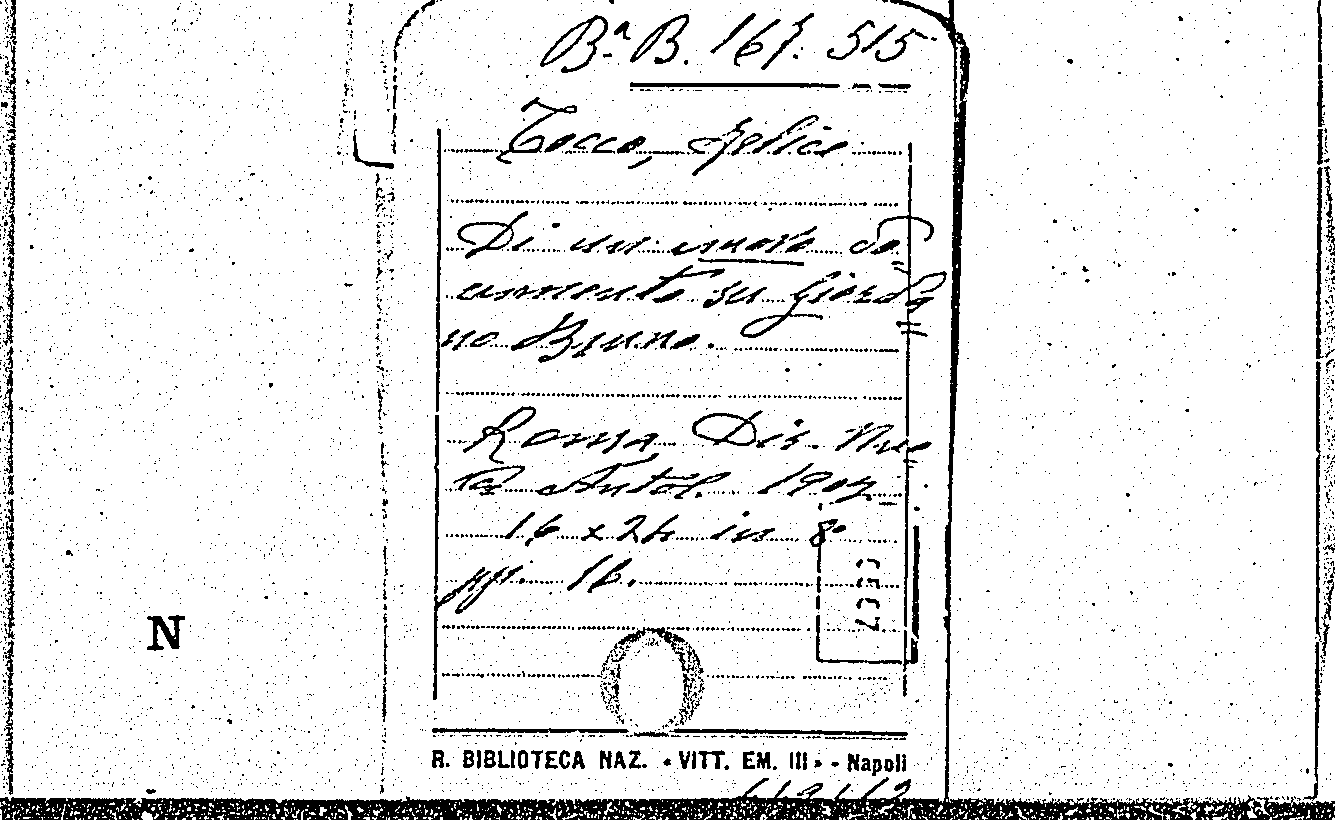 Bª B. 167. 515
Tocco, Felice
Di un nuovo do=
cumento su Giorda=
no Bruno.
Roma, Dir. Nuo=
va Antol. 1902
16 x 24 in 8º
pp. 16.
N
R. BIBLIOTECA NAZ. «VITT. EM. III» - Napoli